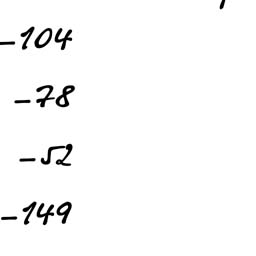 -104
-78
-52
-149